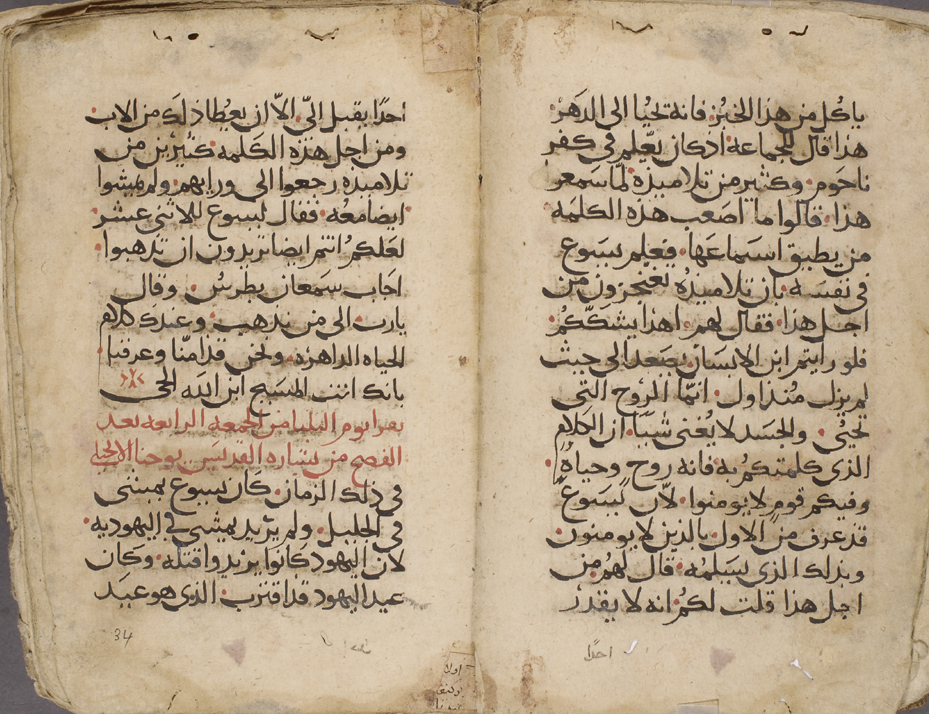 ياكل من هذا الخبز فانه تحيا الى الدهر
هذا قال للجماعة اذ كان يعّلم في كفر
ناحوم وكثير من تلاميذه لمّا سمعو
هذا قالوا ما اصعب هذه الكلمه
من يطيق استماعها فعلم يسوع
في نفسه بان تلاميذه من
اجل هذا فقال لهم اهذا يشكّككم
فلو رايتم ابن الانسان يصعد الى حيث
لم يزل منذ اول انمّا الروح التي
تحيي والجسد لا يغني شيا ان الكلام
الذي كلمتكم به فانه روح وحياةٌ
وفيكم قوم لا يومنوا لانّ يسوع
قد عرف من الاول بالذين لا يومنون
وبذلك الذي يسلمه قال لهم من
اجل هذا قلت لكم انه لا يقدر
احدًا
احدًا يقبل اليّ الاّ ان يعُطا ذلك من الاب
ومن اجل هذه الكلمه كثيرين من
تلاميذه رجعوا الى ورايهم ولم يمشوا
ايضا معه فقال يسوع للاثني عشر
لعلكم انتم ايضا تريدون ان تذهبوا
اجاب سمعان بطرس وقال
يارب الى من نذهب وعندك كلام
الحياه الداهره ونحن قد امنّا وعرفنا
بانك انت المسيح ابن الله الحي
يقرا يوم الثلثا من الجمعه الرابعه بعد
الفصح من بشاره القديس يوحنا الانجيلي
في ذلك الزمان كان يسوع يمشي
في الجليل ولم يريد يمشي في اليهوديه
لان اليهود كانوا يريدوا قتله وكان
عيد اليهود قد اقترب الذي هو عيد
34